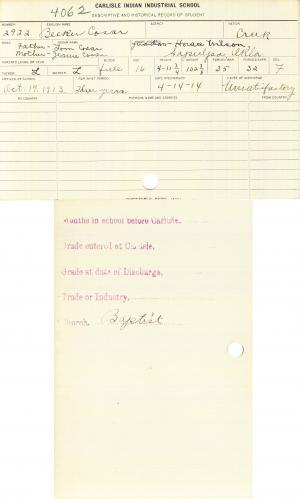 4062
CARLISLE INDIAN INDUSTRIAL SCHOOL
DESCRIPTIVE AND HISTORICAL RECORD OF STUDENT
NUMBER ENGLISH NAME AGENCY NATION
2922 Becker Cosar Creek
BAND INDIAN NAME HOME ADDRESS
Father- Tom Cosar Horace Wilson,
Mother- Jennie Cosar Sapulpa Okla
PARENTS LIVING OR DEAD BLOOD AGE HEIGHT WEIGHT FORCED INSP. FORCED EXPR. SEX
FATHER L MOTHER L full 16 4-11 1/4 102 1/2 35 32 7
ARRIVED AT SCHOOL FOR WHAT PERIOD DATE DISCHARGED CAUSE OF DISCHARGE
Oct. 19, 1913 Three years 4-14-14 Unsatisfactory
TO COUNTRY PATRONS NAME AND ADDRESS
Months in school before Carlisle.
Grade entered at Carlisle.
Grade at date of Discharge.
Trade or Industry.
Church. Baptist